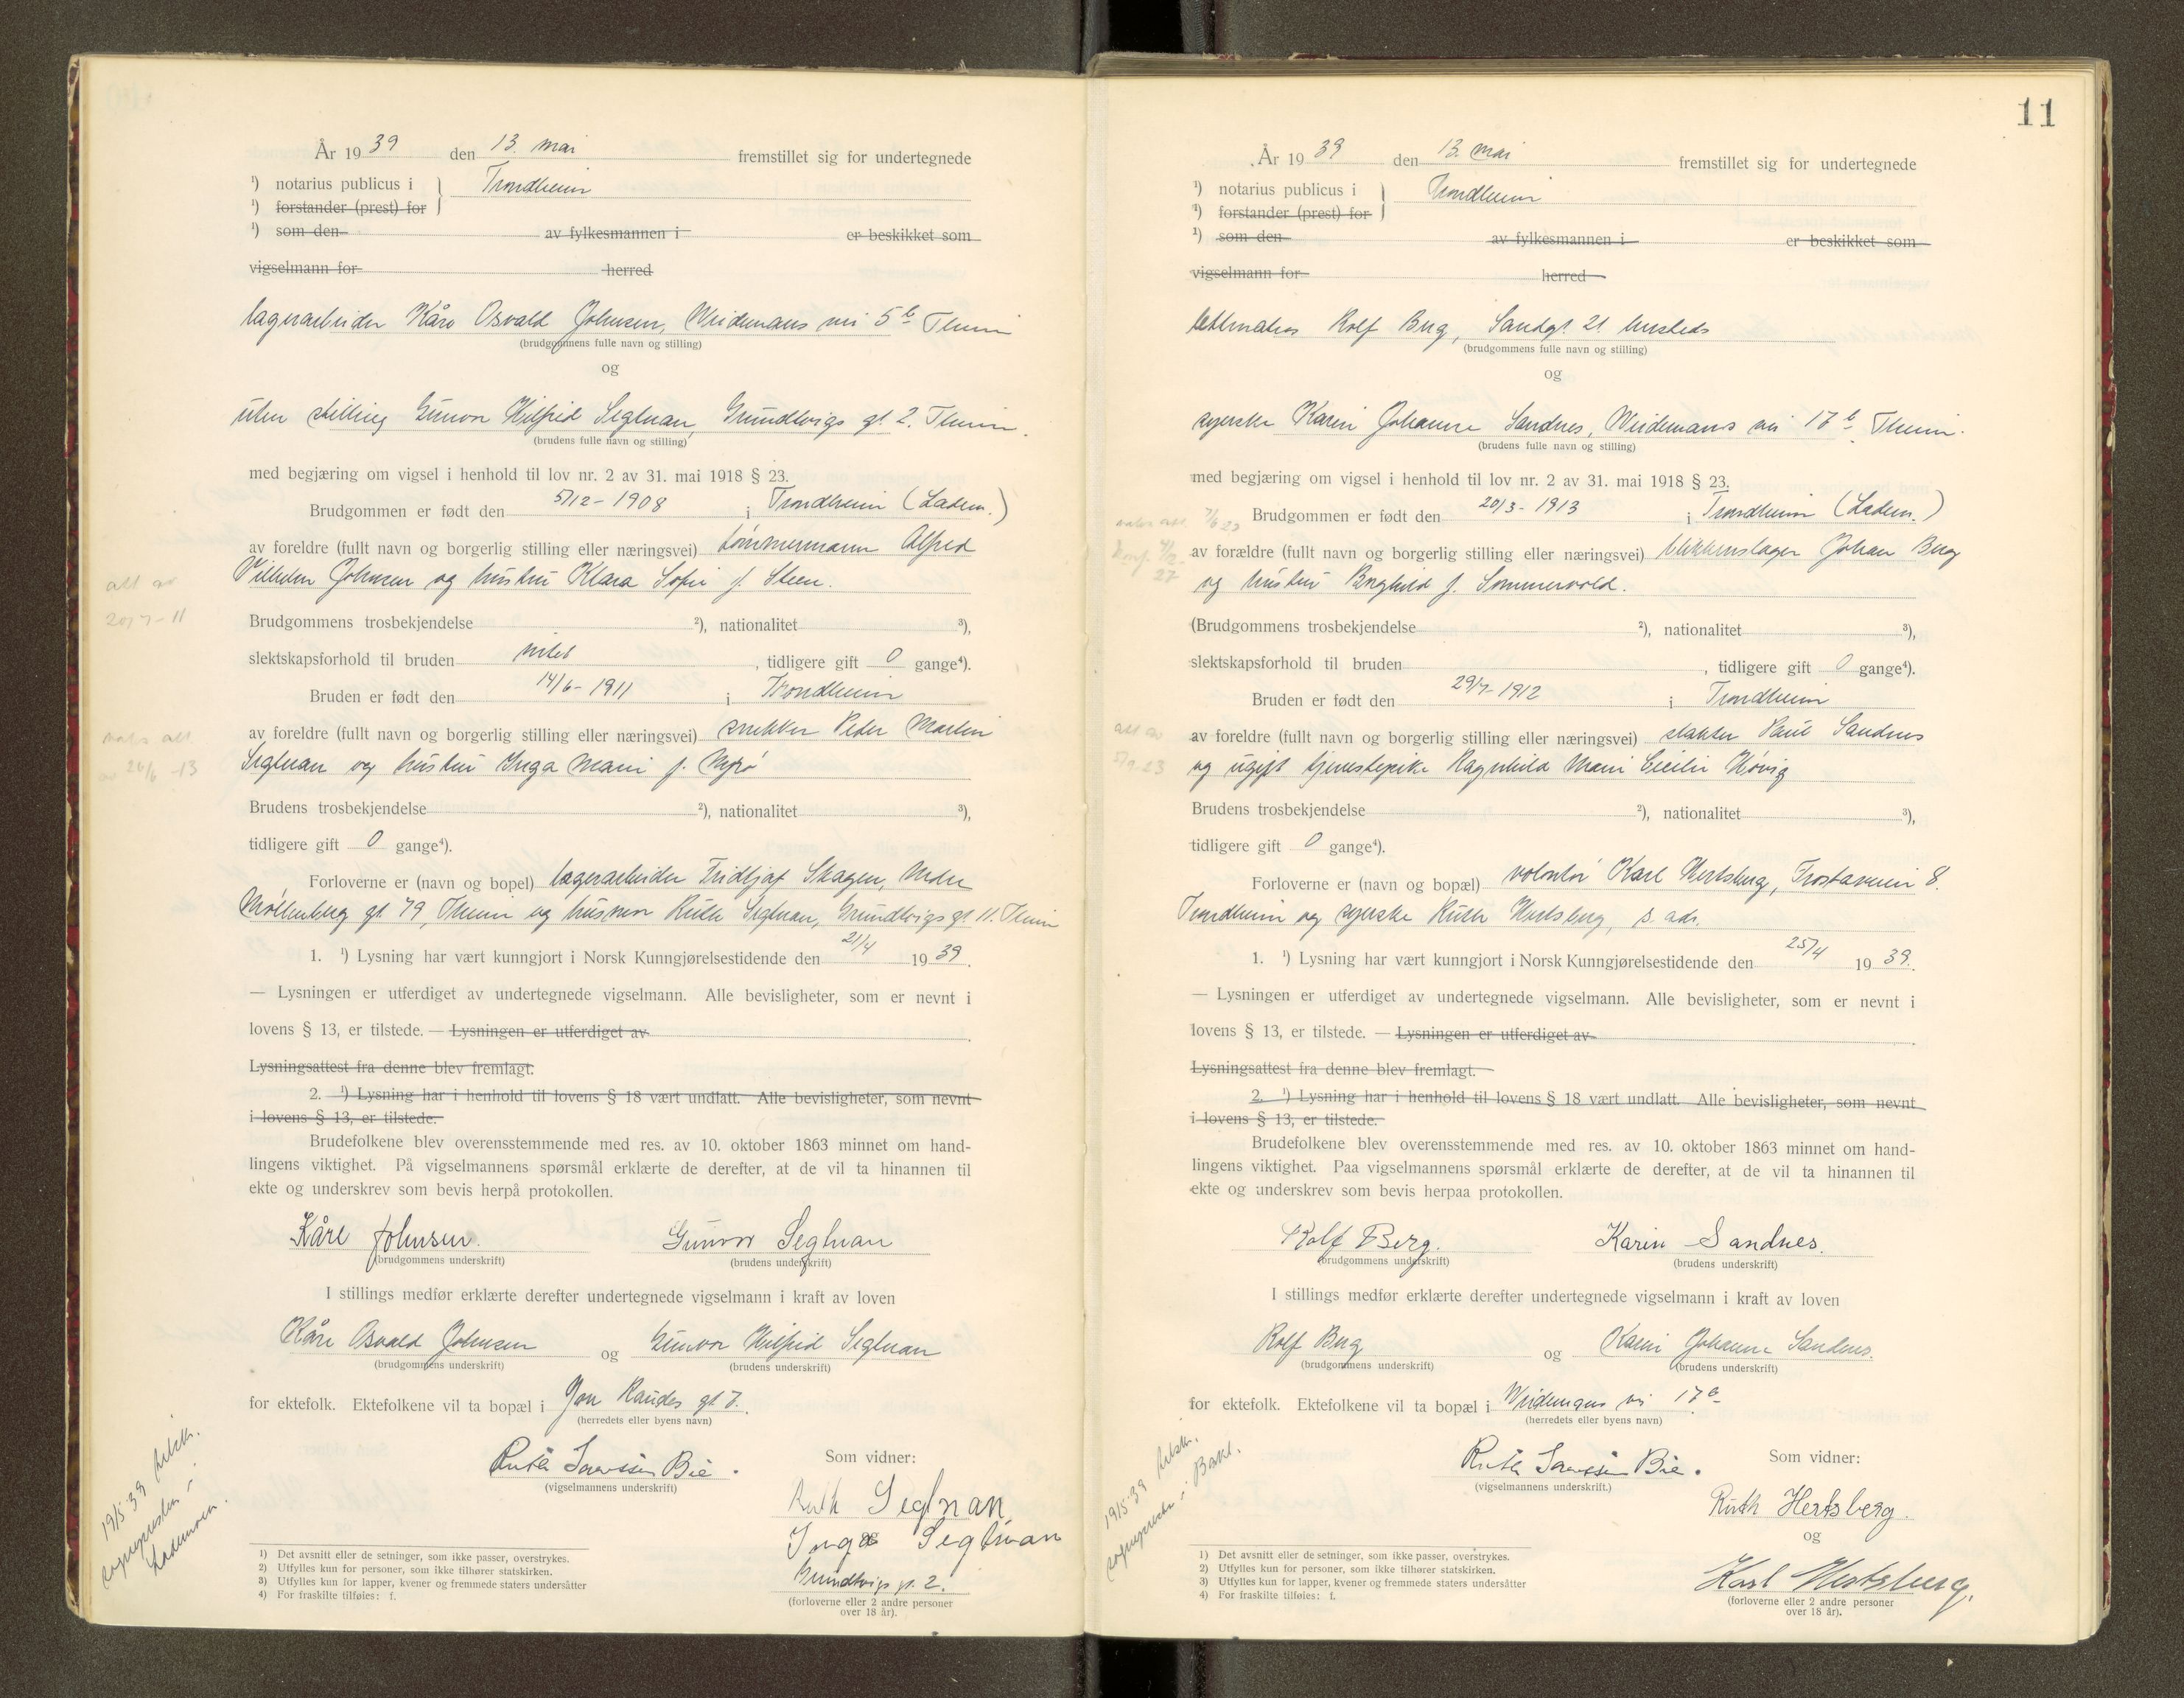 År 1939 den 13. mai fremstillet sig for undertegnede
¹) notarius publicus i } Trondheim
¹) forstander (prest) for
¹) som den av fylkesmannen i er beskikket som
vigselmann for herred
lagerarbeider Kåre Osvald Johnsen, Weidemans vei 5 b Theim
(brudgommens fulle navn og stilling)
og
uten stilling Gunvor Wilfrid Seglnan, Grundtvigs gt. 2. Theim.
(brudens fulle navn og stilling)
med begjæring om vigsel i henhold til lov nr. 2 av 31. mai 1918 § 23.
Brudgommen er født den 5/12-1908 i Trondheim (Ladem.)
av foreldre (fullt navn og borgerlig stilling eller næringsvei) tømmermann Alfred
Vilhelm Johnsen og hustru Klara Sofie f. Steen.
att av
20/7-11
Brudgommens trosbekjendelse ²), nationalitet ³),
slektskapsforhold til bruden intet, tidligere gift 0 gange⁴).
Bruden er født den 14/6-1911 i Trondheim
av foreldre (fullt navn og borgerlig stilling eller næringsvei) snekker Peder Martin
Seglnan og hustru Inga Marie f. Myrø
att
av 26/6-13
Brudens trosbekjendelse ²), nationalitet ³),
tidligere gift 0 gange⁴).
Forloverne er (navn og bopel) lagerarbeider Fridtjof Skagen, Nedre
Møllenberg gt. 79, Theim og husmor Ruth Seglnan, Grundtvigs gt. 11. Theim
1. ¹) Lysning har vært kunngjort i Norsk Kunngjørelsestidende den 21/4 1939.
— Lysningen er utferdiget av undertegnede vigselmann. Alle bevisligheter, som er nevnt i
lovens § 13, er tilstede. — Lysningen er utferdiget av .
Lysningsattest fra denne blev fremlagt.
2. ¹) Lysning har i henhold til lovens § 18 vært undlatt. Alle bevisligheter, som nevnt
i lovens § 13, er tilstede.
Brudefolkene blev overensstemmende med res. av 10. oktober 1863 minnet om hand-
lingens viktighet. På vigselmannens spørsmål erklærte de derefter, at de vil ta hinannen til
ekte og underskrev som bevis herpå protokollen.
Kåre Johnsen. Gunvor Seglnan
(brudgommens underskrift) (brudens underskrift)
I stillings medfør erklærte derefter undertegnede vigselmann i kraft av loven
Kåre Osvald Johnsen og Gunvor Wilfrid Seglnan
(brudgommens underskrift) (brudens underskrift)
for ektefolk. Ektefolkene vil ta bopæl i Jon Raudes gt 7.
(herredets eller byens navn)
Ruth Sørenssen Bie. Som vidner:
(vigselmannens underskrift)
Ruth Seglnan
og
Inga Seglnan
Grundtvigs gt. 2.
(forloverne eller 2 andre personer
over 18 år).
19/5-39
sognepresten i
Lademoen.
1) Det avsnitt eller de setninger, som ikke passer, overstrykes.
2) Utfylles kun for personer, som ikke tilhører statskirken.
3) Utfylles kun for lapper, kvener og fremmede staters undersåtter
4) For fraskilte tilføies: f.
11
År 1939 den 13. mai fremstillet sig for undertegnede
¹) notarius publicus i } Trondheim
¹) forstander (prest) for
¹) som den av fylkesmannen i er beskikket som
vigselmann for herred
lettmatros Rolf Berg, Sandgt. 21. hersteds
(brudgommens fulle navn og stilling)
og
syerske Karin Johanne Sandnes, Weidemans vei 17 b Theim.
(brudens fulle navn og stilling)
med begjæring om vigsel i henhold til lov nr. 2 av 31. mai 1918 § 23.
Brudgommen er født den 20/3-1913 i Trondheim (Ladem.)
av forældre (fullt navn og borgerlig stilling eller næringsvei) blikkenslager Johan Berg
og hustru Borghild f. Sommervold.
27
(Brudgommens trosbekjendelse ²), nationalitet ³),
slektskapsforhold til bruden , tidligere gift 0 gange⁴).
Bruden er født den 29/7-1912 i Trondheim
av foreldre (fullt navn og borgerlig stilling eller næringsvei) slakter Paul Sandnes
og ugift tjenestepike Ragnhild Marie Cecilie Høvig
att av
Brudens trosbekjendelse ²), nationalitet ³),
tidligere gift 0 gange⁴).
Forloverne er (navn og bopæl) volontør Karl Hertsberg, Frostaveien 8.
Trondheim og syerske Ruth Hertsberg, s. adr.
1. ¹) Lysning har vært kunngjort i Norsk Kunngjørelsestidende den 25/4 1939.
— Lysningen er utferdiget av undertegnede vigselmann. Alle bevisligheter, som er nevnt i
lovens § 13, er tilstede. — Lysningen er utferdiget av .
Lysningsattest fra denne blev fremlagt.
2. ¹) Lysning har i henhold til lovens § 18 vært undlatt. Alle bevisligheter, som nevnt
i lovens § 13, er tilstede.
Brudefolkene blev overensstemmende med res. av 10. oktober 1863 minnet om hand-
lingens viktighet. Paa vigselmannens spørsmål erklærte de derefter, at de vil ta hinannen til
ekte og underskrev som bevis herpaa protokollen.
Rolf Berg. Karin Sandnes.
(brudgommens underskrift) (brudens underskrift)
I stillings medfør erklærte derefter undertegnede vigselmann i kraft av loven
Rolf Berg og Karin Johanne Sandnes.
(brudgommens underskrift) (brudens underskrift)
for ektefolk. Ektefolkene vil ta bopæl i Weidemans vei 17 b
(herredets eller byens navn)
Ruth Sørenssen Bie. Som vidner:
(vigselmannens underskrift.)
Ruth Hertsberg.
og
Karl Hertsberg.
(forloverne eller 2 andre personer
over 18 år).
19/5-39
sogneprest i Bakl.
1) Det avsnitt eller de setninger, som ikke passer, overstrykes.
2) Utfylles kun for personer, som ikke tilhører statskirken.
3) Utfylles kun for lapper, kvener og fremmede staters undersåtter
4) For fraskilte tilføies: f.